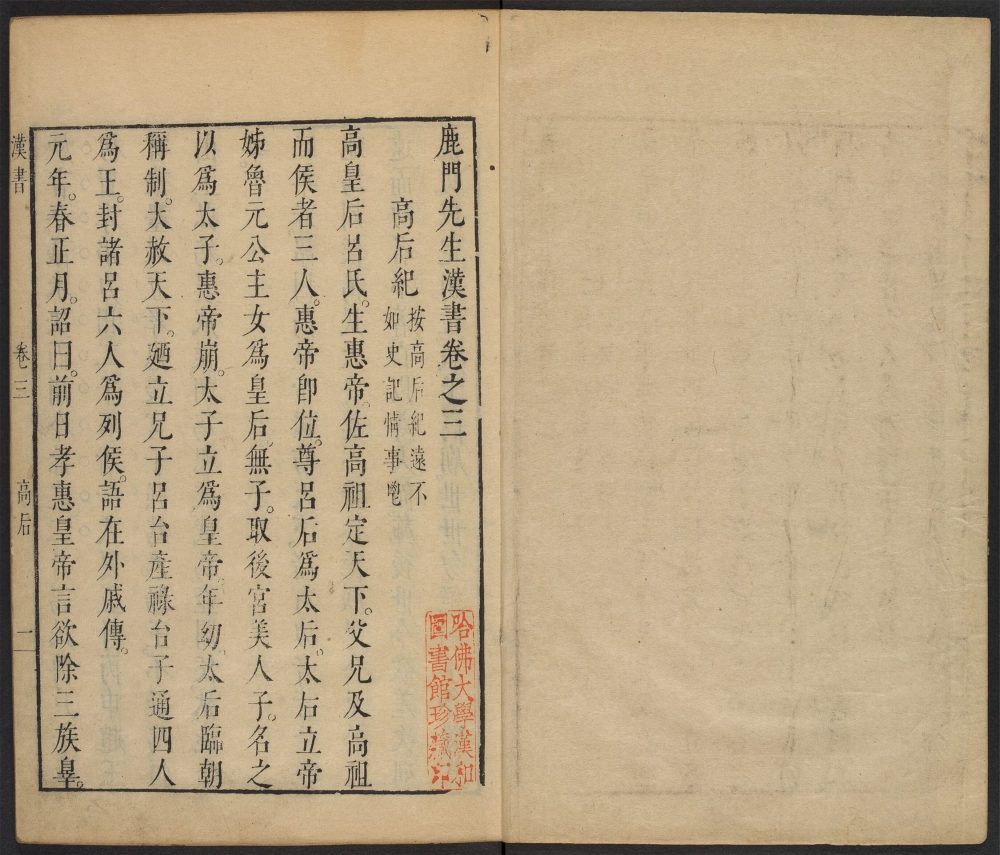 鹿門先生漢書卷之三
高后紀
按高后紀遠不
如史記情事鬯
高皇后呂氏。生惠帝。佐高祖定天下。父兄及高祖
而侯者三人。惠帝卽位。尊呂后爲太后。太后立帝
姊魯元公主女爲皇后。無子。取後宮美人子。名之
以爲太子。惠帝崩。太子立爲皇帝。年幼。太后臨朝
稱制。大赦天下。廼立兄子呂台產祿台子通四人
爲王。封諸呂六人爲列侯。語在外戚傳。
元年。春正月。詔曰。前日孝惠皇帝言欲除三族辠。
漢書
卷三
高后
一
哈佛大學漢和
圖書館珍藏印